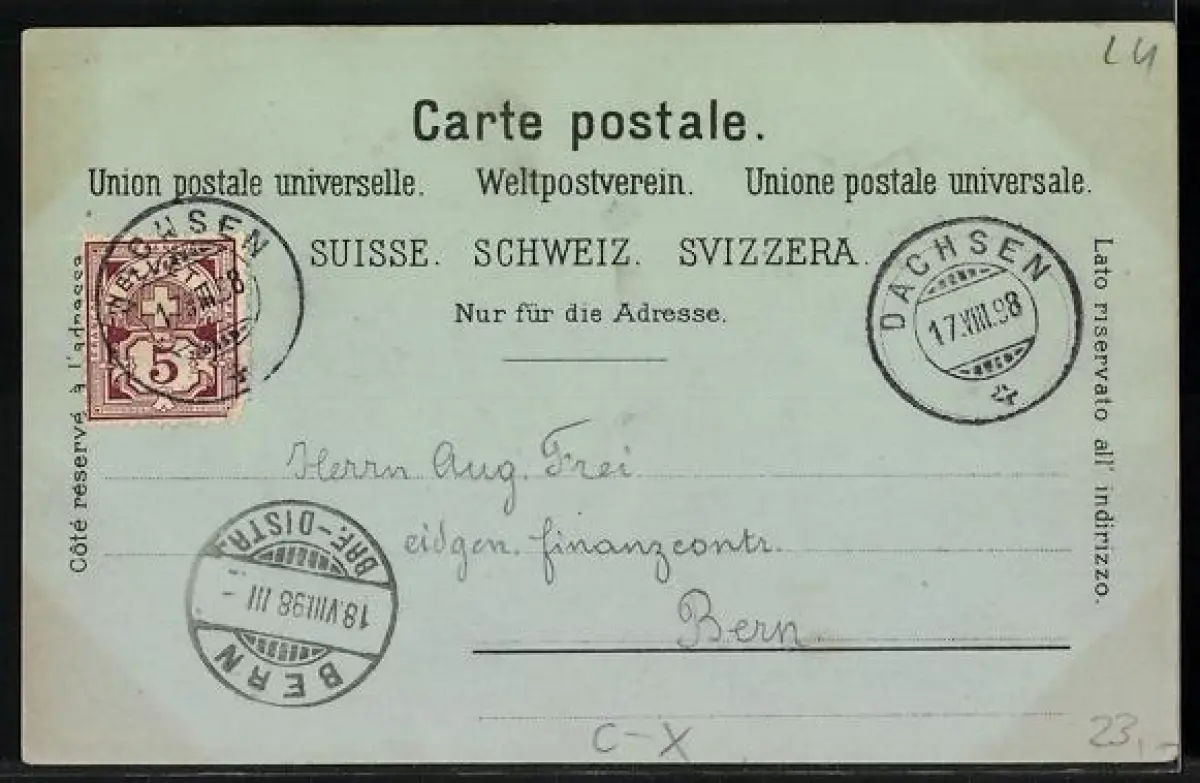 L4
Carte postale.
Union postale universelle. Weltpostverein. Unione postale universale.
SUISSE. SCHWEIZ. SVIZZERA.
Nur für die Adresse.
Côté réservé à l'adresse
Lato riservato all' indirizzo.
DACHSEN
5
DACHSEN
17.VIII.98
Herrn Aug. Frei
eidgen. finanzcontr.
Bern
BRF.-DISTR.
18.VIII.98 III -
BERN
C-X
23,-